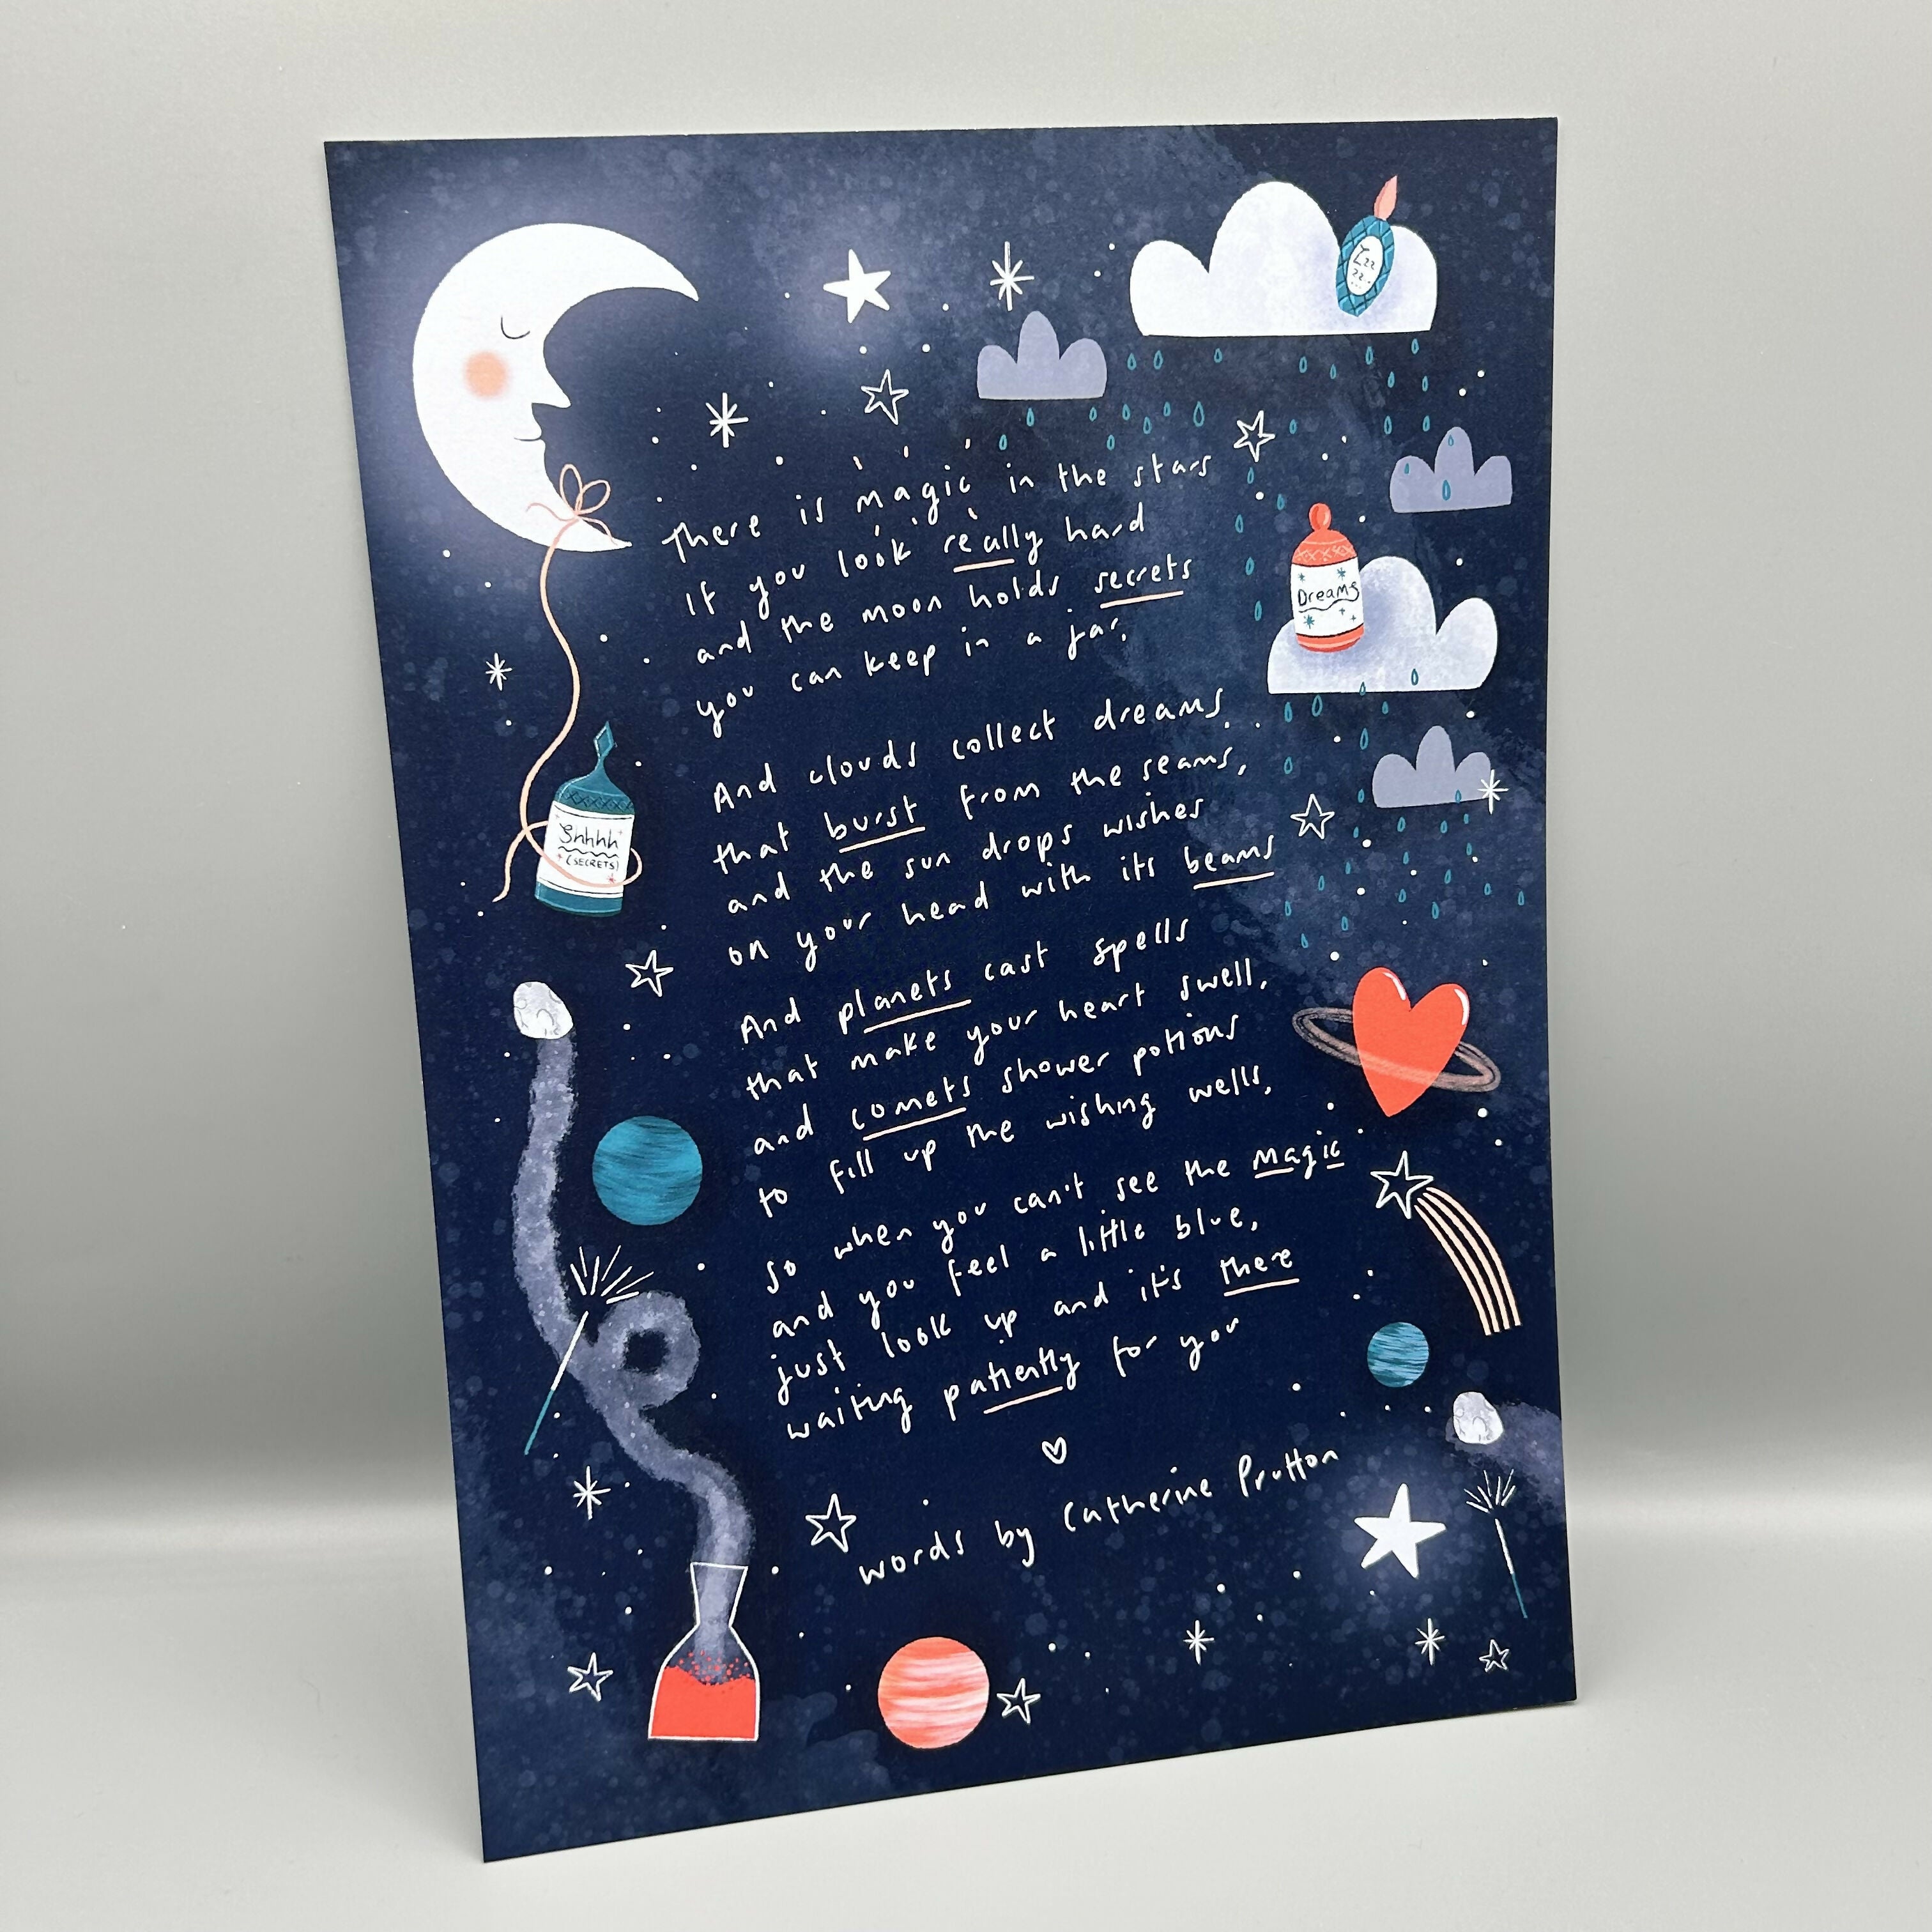 Zzz
zz..
There is magic in the stars
if you look really hard
and the moon holds secrets
you can keep in a jar.
Dreams
And clouds collect dreams
that burst from the seams,
and the sun drops wishes
on your head with its beams
Shhhh
(SECRETS)
And planets cast spells
that make your heart swell,
and comets shower potions
to fill up the wishing wells,
so when you can't see the magic
and you feel a little blue,
just look up and it's there
waiting patiently for you
words by Catherine Prutton